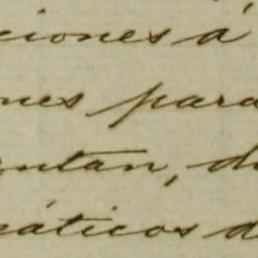 ciones á
nes para
entan, d
áticos d